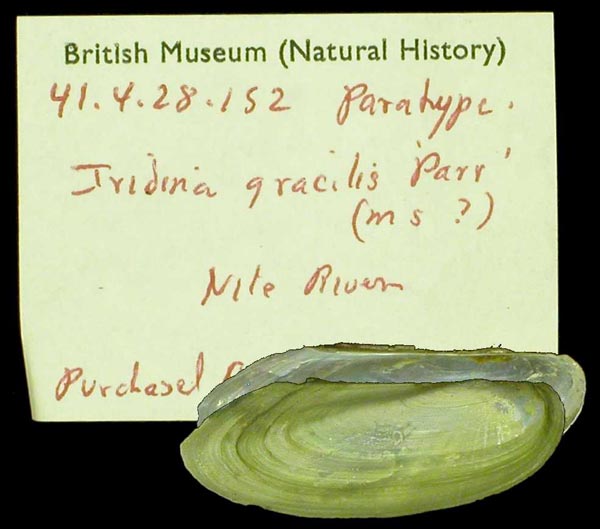 British Museum (Natural History)
41.4.28.152 Paratype.
Iridina gracilis 'Parr'
(ms?)
Nile River
Purchased